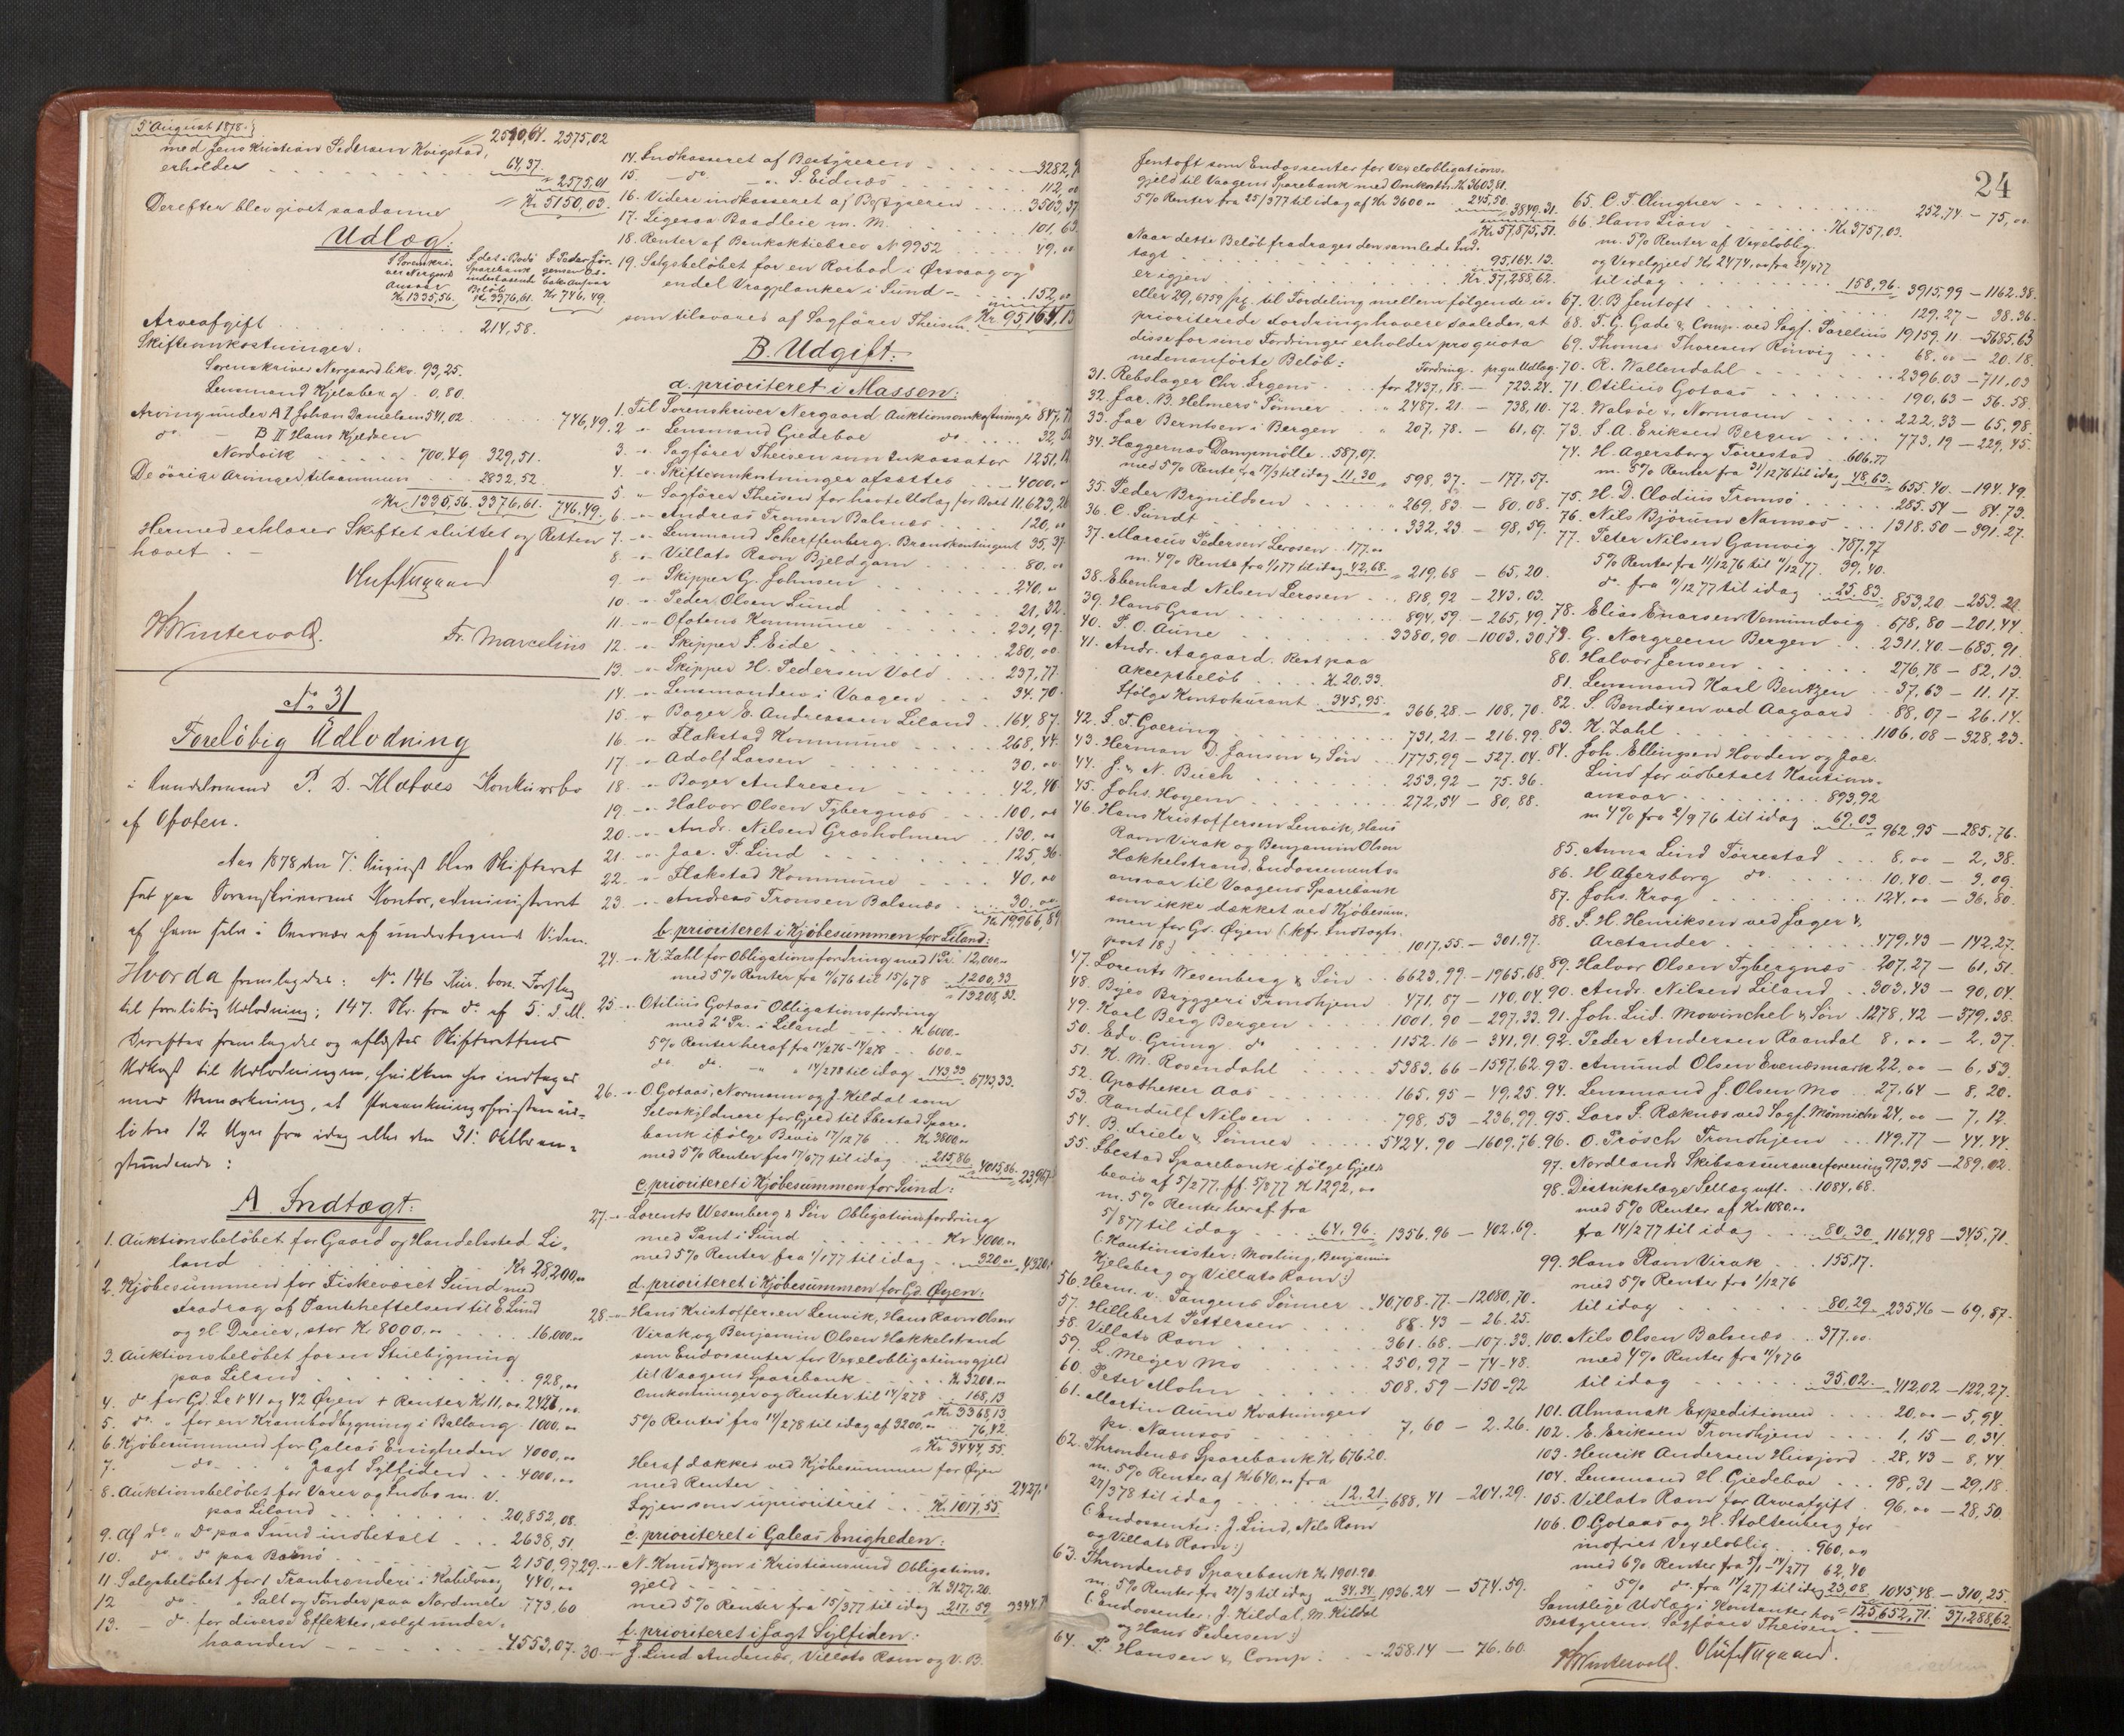 5' August 1878.
med Jens Kristian Pedersen Kvigstad, 2510,64. 2575,02
erholder 64,37.
2575,01
Kr. 5150,03.
Derefter blev givet saadanne
Udlæg:
Arveafgift 214,58.
Skifteomkostninger:
Sorenskriver Nergaard likv. 93,25.
Lensmand Kjelsberg 0,80.
Arving under A I Johan Danielsen 541,02
746,49.
do — B II Hans Kjeldsen
Nordvik 700.49 329,51.
De övrige Arvinger tilsammen 2832,52.
Kr. 1335,56. 3376,61. 746,49.
Hermed erklæres Skiftet sluttet og Retten
hævet. —
Oluf Nergaard
Wintervold. Fr. Marcelius
No 31
Foreløbig Udlodning
i Handelsmand P. D. Klæboes Konkursbo
af Ofoten.
Aar 1878 den 7. August blev Skifteret
sat paa Sorenskriverens Kontor, administreret
af ham selv i Overvær af undertegnede Vidner.
Hvorda fremlagdes: No 146 Kur. bon. Forslag
til foreløbig Udlodning; 147. Skr. fra do af 5. d. M.
Derefter fremlagdes og oplæstes Skifterettens
Udkast til Udlodningen, hvilken her indtages
med Bemærkning, at Paaankningsfristen ud-
løber 12 Uger fra idag eller den 31. Oktbr. an-
stundende:
A. Indtægt:
1. Auktionsbeløbet for Gaard og Handelssted Li-
land Kr 28,200,00
2. Kjöbesummen for Fiskeværet Sund med
Fradrag af Pantheftelsen til E. Lind
og H. Dreier, stor Kr 8000,00 16,000,00
3. Auktionsbeløbet for en Stuebygning
paa Liland 928,00
4. do for Gd. Le No 41 og 42 Øyen + Renter Kr 11,00 2427,00
5. do " for en Krambodbygning i Ballang 1000,00
6. Kjöbesummen for Galeas Enigheden 4000,00
7. do " Jagt Sylfiden 4000,00
8. Auktionsbeløbet for Varer og Indbo m. v.
paa Liland 20,852,08.
9. Af do " do paa Sund indbetalt 2638,51.
10. do " do paa Barnö 2150,97
11. Salgsbeløbet for 1 Tranbrænderi i Kabelvaag 440,00
12 do " Salt og Tønder paa Nordmela 773,60
13. — do for diverse Effekter, solgt under-
haanden 4553,07.
14. Indkasseret af Bestyreren 3282,
15. — do — S. Eidnæs 112,00
16. Videre indkasseret af Bestyreren 3503,37
17. Ligesaa Baadleie m. M. 101,63
18. Renter af Bankaktiebrev No 9952 49,00
19. Salgsbeløbet for en Rorbod i Ørsvaag og
endel Vragplanker i Sund 152,00
som tilsvares af Sagfører Theisen Kr. 95,164,13
B. Udgift:
a. prioriteret i Massen:
1. Til Sorenskriver Nergaard Auktionsomkostninger 847,
2 " Lensmand Giedeboe do 32,
3. " Sagfører Theisen som Inkassator 1251,
4. " Skifteomkostninger afsættes 4000,00
5. " Sagfører Theisen for havte Udlæg for Boet 11,623,
6. " Andreas Tronsen Balsnæs 120,00
7. " Lensmand Scherffenberg. Brandkontingent 35,37.
8 " Villats Ravn Bjeldgam 80,00
9. " Skipper G. Johnsen 240,00
10. " Peder Olsen Lund 21,32.
11. " Ofotens Kommune 231,97.
12. " Skipper S. Eide 280,00
13. " Skipper H. Pedersen Vold 237,77.
14. " Lensmanden i Vaagen 34.70.
15. " Bager E. Andreassen Liland 164,87.
16. " Flakstad Kommune 268,44.
17. " Adolf Larsen 30,00
18. " Bager Andresen 42,40
19. " Halvor Olsen Tybergnæs 100,00
20. " Andr. Nilsen Græsholmen 130,00
21. " Jac. P. Lind 125,36.
22. " Flakstad Kommune 40,00
23. " Andreas Tronsen Balsnæs 30,00
Kr. 19966,89
b. prioriteret i Kjöbesummen for Liland:
24. " K. Zahl for Obligationsfordring med 1 Pr. 12,000,00
med 5% Renter fra 11/676 til 15/678 1200,33
13208,33.
25. " Otilius Gotaas Obligationsfordring
med 2' Pr. i Liland Kr. 6000,-
5% Renter heraf fra 14/276 - 14/278 600,-
do do " 14/278 til idag 143,33 6743,33.
26. " O. Gotaas, Normann og J. Kildal som
Selvskyldnere for Gjeld til Ibestad Spare-
bank ifölge Bevis 17/1276 Kr. 3800,00
med 5% Renter fra 17/677 til idag 215,86 4015,86 23,967
c. prioriteret i Kjöbesummen for Sund:
27. " Lorents Wesenberg & Søn Obligationsfordring
med Pant i Sund Kr 4000,00
med 5% Renter fra 1/177 til idag 320,00 4320,
d. prioriteret i Kjöbesummen for Gd. Øyen:
28. " Hans Kristoffersen Lenvik, Hans Ravn Olsen
Virak og Benjamin Olsen Hakkelstrand
som Endossenter for Vexelobligationsgjeld
til Vaagens Sparebank Kr. 3200,00
Omkostninger og Renter til 14/278 168,13
Kr 3368,13
5% Renter fra 14/278 til idag af 3200,00 76,42.
Kr 3444,55.
Heraf dækkes ved Kjöbesummen for Øyen
med Renter 2427,
Igjen som uprioriteret Kr. 1017,55
e. prioriteret i Galeas Enigheden:
29. " N. Knudtzon i Kristiansund Obligations-
gjeld Kr. 3127.20.
med 5% Renter fra 15/377 til idag 217.59 3344,79
f. prioriteret i Jagt Sylfiden:
30 " J. Lind Andenæs, Villats Ravn og V. B.
24
Jentoft som Endossenter for Vexelobligations-
gjeld til Vaagens Sparebank med Omkostn. Kr. 3603,81.
5% Renter fra 25/377 til idag af Kr 3600,00 245,50. 3849.31.
Kr. 57,875,51.
Naar dette Beløb fradrages den samlede Ind-
tægt 95,164.13.
er igjen Kr. 37,288,62.
eller 29,6759 pCt. til Fordeling mellem følgende u-
prioriterede Fordringshavere saaledes, at
disse for sine Fordringer erholder pro quota
nedenanførte Beløb: Fordring. pr. qu. Udlæg.
31. Rebslager Chr. Irgens for 2437.18 — 723.24.
32. Jac. B. Helmers Sönner " 2487.21 — 738,10.
33. Jac Berntsen i Bergen " 207.78. — 61,67.
34. Hæggernæs Dampmølle 587,07.
med 5% Rente fra 17/3 til idag 11,30 598,37. — 177,57.
35. Peder Brynildsen 269,83 — 80,08.
36. C. Lundt 332,23 — 98,59.
37. Marcus Pedersen Lerosen 177,00
m. 4% Rente fra 1/177 til idag 42,68. 219,68 — 65,20.
38. Ebenhard Nilsen Lerosen 818,92 — 243,03.
39. Hans Gran 894,59 — 265,49.
40. P. O. Aune 3380,90 — 1003,30
41. Andr. Aagaard. Rest paa
Akceptbeløb Kr. 20.33.
Ifølge Kontokurant 345,95. 366,28 — 108,70.
42. L. T. Goering 731,21 — 216.99.
43. Herman D. Janson & Søn 1775,99 — 527.04.
44. J. & N. Buch 253,92 — 75.36.
45. Johs. Hoyem 272,54 — 80,88.
46. Hans Kristoffersen Lenvik, Hans
Ravn Virak og Benjamin Olsen
Hakkelstrand. Endossements-
ansvar til Vaagens Sparebank
som ikke dækket ved Kjöbesum-
men for Gd. Øyen (: kfr. Indtægts-
post 18:) 1017,55. — 301.97.
47. Lorents Wesenberg & Søn 6623,99. — 1965.68
48. Byes Bryggeri Trondhjem 471,87 — 140,04
49. Karl Berg Bergen 1001,90 — 297,33.
50. Edv. Gruing do 1152.16 — 341,91.
51. H. M. Rosendahl 5383.66 — 1597.62.
52. Apotheker Aas 165,95 — 49,25
53. Randulf Nilsen 798,53 — 236,99
54. B. Friele & Sönner 5424.90 — 1609,76
55. Ibestad Sparebank ifølge Gjelds-
bevis af 5/277. ff. 5/877 Kr 1292,00
m. 5% Renter heraf fra
5/877 til idag 64,96. 1356.96 — 402.69.
(: Kautionister: Mosling, Benjamin
Kjelsberg og Villats Ravn :)
56. Herm. v. Tangens Sönner 40,708.77. — 12080,70.
57. Hillebert Pettersen 88.43 — 26.25.
58. Villats Ravn 361.68. — 107.33.
59. L. Meÿer Mo 250,97 — 74.48.
60. Peter Mohn 508,59 — 150.92
61. Martin Aune Kvatningen
pr. Namsos 7,60 — 2.26.
62. Throndenæs Sparebank Kr. 676.20.
m. 5% Renter af Kr 640,00 fra
27/378 til idag 12,21. 688,41 — 204.29.
(: Endossenter: J. Lind, Nils Ravn
og Villats Ravn :)
63. Throndenæs Sparebank Kr. 1901.90.
m. 5% Renter fra 27/3 til idag 34.34. 1936.24 — 574.59.
(: Endossenter: J. Kildal, M. Kildal
og Hans Pedersen :)
64. P. Hansen & Comp. 258.14 — 76.60.
65. C. F. Clingher 252,74 — 75,00
66. Hans Lian Kr 3757,03.
m. 5% Renter af Vexeloblig.
og Vexelgjeld Kr. 2474,00 fra 24/477
til idag 158,96. 3915,99 — 1162.38.
67. V. B. Jentoft 129.27 — 38.36.
68. F. G. Gade & Comp. ved Sagf. Parelius 19159.11 — 5685,63
69. Thomas Thoresen Rönvig 68.00 — 20.18.
70. R. Wallendahl 2396.03 — 711.03
71. Otilius Gotaas 190,63 — 56.58.
72. Walsöe & Normann 222,33 — 65,98.
73. S. A. Eriksen Bergen 773.19 — 229,45.
74. H. Agersborg Tørrestad 606,77
m. 5% Renter fra 31/1276 til idag 48,63. 655.40. — 194.49.
75. H. D. Clodius Tromsö 285.54 — 84.73.
76. Nils Björum Namsos 1318.50 — 391.27.
77. Peter Nilsen Gamvig 787.97
5% Renter fra 11/1276 til 11/1277. 39,40.
do fra 11/1277 til idag 25,83. 853,20 — 253.21.
78. Elias Enarsen Vemundvig 678,80 — 201.44.
79. G. Norgreen Bergen 2311,40. — 685,91.
80. Halvor Jensen 276,78 — 82,13.
81. Lensmand Karl Bentzen 37,63 — 11.17.
82. S. Bendixen ved Aagaard 88,07 — 26.14.
83. K. Zahl 1106.08 — 328,23.
84. Joh. Ellingsen Hovden og Jac.
Lind for udbetalt Kautions-
ansvar 893,92
m 4% fra 2/9 76 til idag 69,03 962.95 — 285,76.
85. Anna Lind Tørrestad 8,00 — 2,38.
86. H Agersborg do 10.40. — 3.09
87. Johs. Krog 124,00 — 36.80.
88. S. H. Henriksen ved Jæger &
Arctander 479,43 — 142,27.
89. Halvor Olsen Tybergnæs 207.27 — 61,51.
90. Andr. Nilsen Liland 303,43 — 90,04.
91. Joh. Lud. Mowinckel & Søn 1278,42 — 379,38.
92. Peder Andersen Raandal 8,00 — 2,37.
93. Amund Olsen Evenæsmark 22,00 — 6,53.
94. Lensmand J. Olsen Mo 27,64 — 8,20.
95. Lars S. Ræknæs ved Sagf. Mönnichs 24,00 — 7,12.
96. O. Prösch Trondhjem 149,77 — 44.44.
97. Nordlands Skibsassuranceforening 973,95 — 289,02.
98. Distriktslæge Selläg ufl. 1084,68.
med 5% Renter af Kr 1080,00
fra 14/277 til idag 80,30 1164,98 — 345,71.
99. Hans Ravn Virak 155,17.
med 5% Renter fra 1/1276
til idag 80,29 235,46 — 69,87.
100. Nils Olsen Balsnæs 377.00
med 4% Renter fra 11/476
til idag 35,02. 412,02 — 122,27.
101. Almanak Expeditionen 20,00 — 5,94.
102. E. Eriksen Trondhjem 1,15 — 0,34.
103. Henrik Andersen Husjord 28,43 — 8,44
104. Lensmand H. Giedeboe 98,31 — 29,18.
105. Villats Ravn for Arveafgift 96,00 — 28,50.
106. O. Gotaas og H. Stoltenberg for
indfriet Vexeloblig. 960,00
med 6% Renter fra 5/1 - 14/277 62,40
" 5% do fra 14/277 til idag 23,08. 1045,48. — 310,25.
Samtlige Udlæg i Kontanter hos 125,652,71. 37,288,62.
Bestyreren Sagfører Theisen.
Wintervold. Oluf Nergaard.